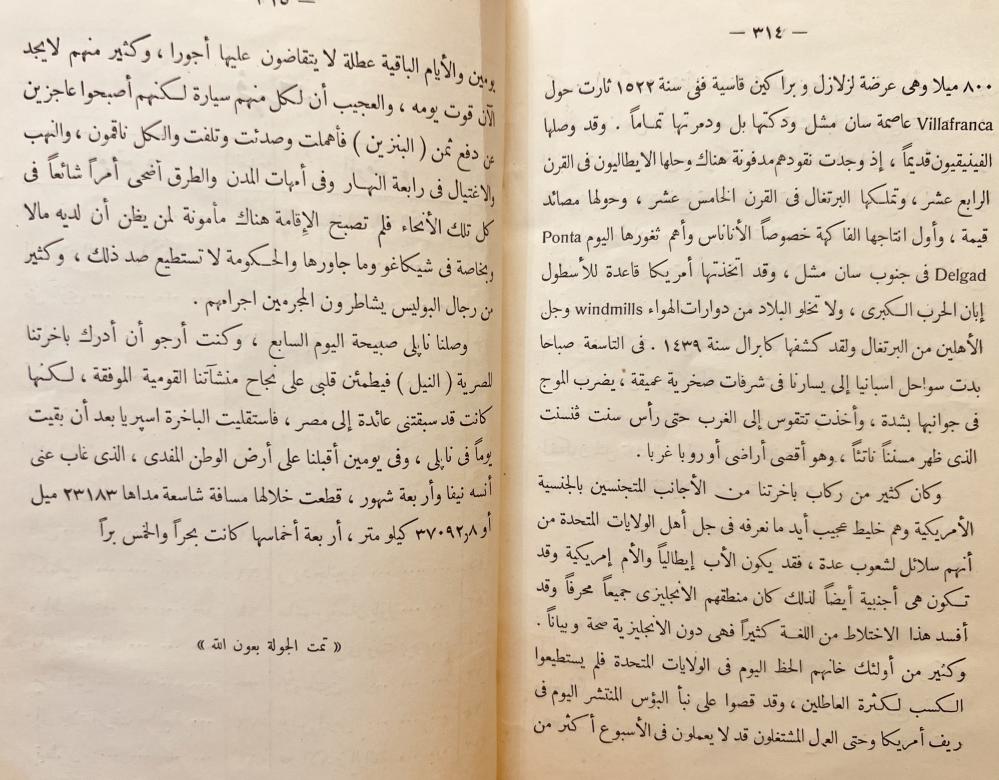 — ٣١٤ —
٨٠٠ ميلا وهى عرضة لزلازل وبراكين قاسية ففى سنة ١٥٢٢ ثارت حول
Villafranca عاصمة سان مشل ودكتها بل ودمرتها تمـاماً . وقد وصلها
الفينيقيون قديماً ، إذ وجدت نقودهم مدفونة هناك وحلها الايطاليون فى القرن
الرابع عشر ، وتملكها البرتغال فى القرن الخامس عشر ، وحولها مصائد
قيمة ، وأول انتاجها الفاكهة خصوصاً الأناناس وأهم ثغورها اليوم Ponta
Delgad فى جنوب سان مشل ، وقد اتخذتها أمريكا قاعدة للأسطول
إبان الحرب الكبرى ، ولا تخلو البلاد من دوارات الهواء windmills وجل
الأهلين من البرتغال ولقد كشفها كابرال سنة ١٤٣٩ . فى التاسعة صباحا
بدت سواحل اسبانيا إلى يسارنا فى شرفات صخرية عميقة ، يضرب الموج
فى جوانبها بشدة ، وأخذت تتقوس إلى الغرب حتى رأس سنت فنسنت
الذى ظهر مسنناً ناتئاً ، وهو أقصى أراضى أوروبا غربا .
وكان كثير من ركاب باخرتنا من الأجانب المتجنسين بالجنسية
الأمريكية وهم خليط عجيب أيد ما نعرفه فى جل أهل الولايات المتحدة من
أنهم سلائل لشعوب عدة ، فقد يكون الأب إيطالياً والأم إمريكية وقد
تكون هى أجنبية أيضاً لذلك كان منطقهم الانجليزى جميعاً محرفاً وقد
أفسد هذا الاختلاط من اللغة كثيراً فهى دون الانجليزية صحة وبياناً .
وكثير من أولئك خانهم الحظ اليوم فى الولايات المتحدة فلم يستطيعوا
الكسب لكثرة العاطلين ، وقد قصوا على نبأ البؤس المنتشر اليوم فى
ريف أمريكا وحتى العمل المشتغلون قد لا يعملون فى الأسبوع أكثر من
— ٣١٥ —
يومين والأيام الباقية عطلة لا يتقاضون عليها أجورا ، وكثير منهم لايجد
الآن قوت يومه ، والعجيب أن لكل منهم سيارة لكنهم أصبحوا عاجزين
عن دفع ثمن ( البنزين ) فأهملت وصدئت وتلفت والكل ناقمون ، والنهب
والاغتيال فى رابعة النهـار وفى أمهات المدن والطرق أضحى أمراً شائعاً فى
كل تلك الأنحاء فلم تصبح الإقامة هناك مأمونة لمن يظن أن لديه مالا
وبخاصة فى شيكاغو وما جاورها والحكومة لا تستطيع صد ذلك ، وكثير
من رجال البوليس يشاطرون المجرمين اجرامهم .
وصلنا نابلى صبيحة اليوم السابع ، وكنت أرجو أن أدرك باخرتنا
المصرية ( النيل ) فيطمئن قلبى على نجاح منشآتنا القومية الموفقة ، لكنها
كانت قد سبقتنى عائدة إلى مصر ، فاستقليت الباخرة اسپريا بعد أن بقيت
يوماً فى نابلى ، وفى يومين أقبلنا على أرض الوطن المفدى ، الذى غاب عنى
أنسه نيفا وأربعة شهور ، قطعت خلالها مسافة شاسعة مداها ٢٣١٨٣ ميل
أو ٣٧٠٩٢٫٨ كيلو متر ، أربعة أخماسها كانت بحراً والخمس براً
« تمت الجولة بعون الله »